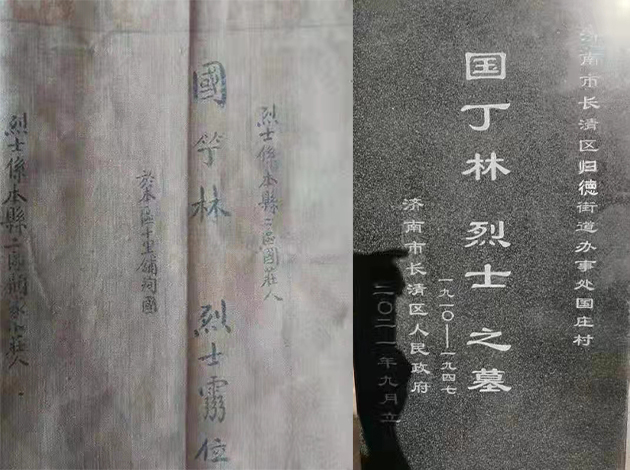 烈士係本縣二區國莊人
國林 烈士靈位
於本區十里鋪殉國
烈士係本縣二區家莊人
济南市长清区归德街道办事处国庄村
国丁林 烈士 之墓
一九一〇——一九四七
济南市长清区人民政府
二〇二一年九月立